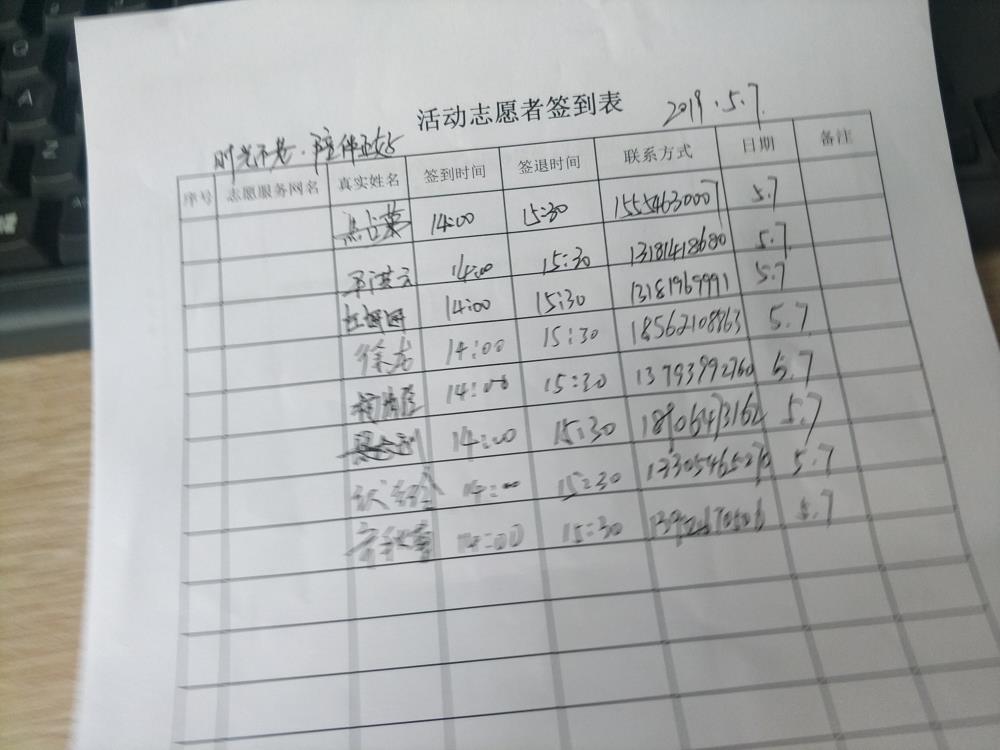 活动志愿者签到表 2019.5.7
时光不老·陪伴正好
序号 志愿服务网名 真实姓名 签到时间 签退时间 联系方式 日期 备注
14:00 15:30 15554630007 5.7
14:00 15:30 13181418680 5.7
14:00 15:30 13181969991 5.7
徐龙 14:00 15:30 18562108863 5.7
14:00 15:30 13793992760 5.7
14:00 15:30 18906473162 5.7
14:00 15:30 13305465270 5.7
14:00 15:30 5.7